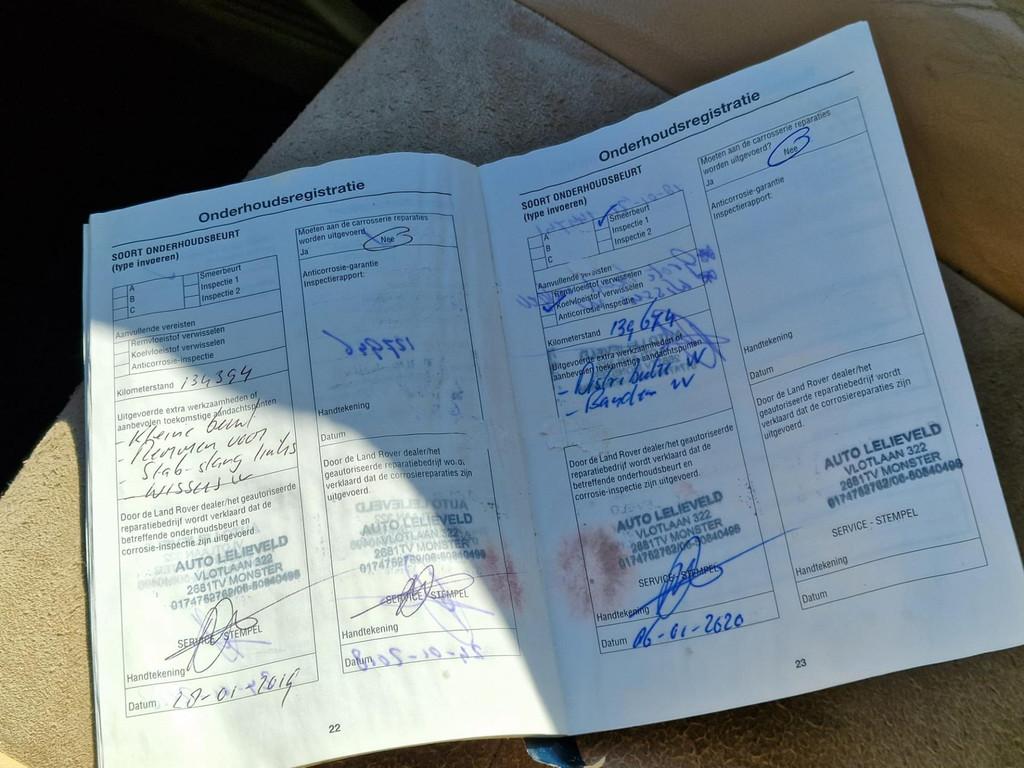 Onderhoudsregistratie
SOORT ONDERHOUDSBEURT
(type invoeren)
A
B
C
Smeerbeurt
Inspectie 1
Inspectie 2
Aanvullende vereisten
Remvloeistof verwisselen
Koelvloeistof verwisselen
Anticorrosie-inspectie
Kilometerstand 134394
Uitgevoerde extra werkzaamheden of
aanbevolen toekomstige aandachtspunten
- Kleine beurt
- Remmen voor
- Stab-stang links
- wissers
Door de Land Rover dealer/het geautoriseerde
reparatiebedrijf wordt verklaard dat de
betreffende onderhoudsbeurt en
corrosie-inspectie zijn uitgevoerd.
AUTO LELIEVELD
VLOTLAAN 322
2681TV MONSTER
0174762762/06-50840498
SERVICE - STEMPEL
Handtekening
Datum 28-01-2019
Moeten aan de carrosserie reparaties
worden uitgevoerd?
Ja Nee
Anticorrosie-garantie
Inspectierapport:
Handtekening
Datum
Door de Land Rover dealer/het
geautoriseerde reparatiebedrijf wordt
verklaard dat de corrosiereparaties zijn
uitgevoerd.
AUTO LELIEVELD
VLOTLAAN 322
2681TV MONSTER
0174762762/06-50840498
SERVICE - STEMPEL
Handtekening
Datum
22
Onderhoudsregistratie
SOORT ONDERHOUDSBEURT
(type invoeren)
A
B
C
Smeerbeurt
Inspectie 1
Inspectie 2
Aanvullende vereisten
Remvloeistof verwisselen
Koelvloeistof verwisselen
Anticorrosie-inspectie
Kilometerstand 139674
Uitgevoerde extra werkzaamheden of
aanbevolen toekomstige aandachtspunten
- Distributie
- Banden
Door de Land Rover dealer/het geautoriseerde
reparatiebedrijf wordt verklaard dat de
betreffende onderhoudsbeurt en
corrosie-inspectie zijn uitgevoerd.
AUTO LELIEVELD
VLOTLAAN 322
2681TV MONSTER
0174762762/06-50840498
SERVICE - STEMPEL
Handtekening
Datum 06-01-2020
Moeten aan de carrosserie reparaties
worden uitgevoerd?
Ja Nee
Anticorrosie-garantie
Inspectierapport:
Handtekening
Datum
Door de Land Rover dealer/het
geautoriseerde reparatiebedrijf wordt
verklaard dat de corrosiereparaties zijn
uitgevoerd.
AUTO LELIEVELD
VLOTLAAN 322
2681TV MONSTER
0174762762/06-50840498
SERVICE - STEMPEL
Handtekening
Datum
23